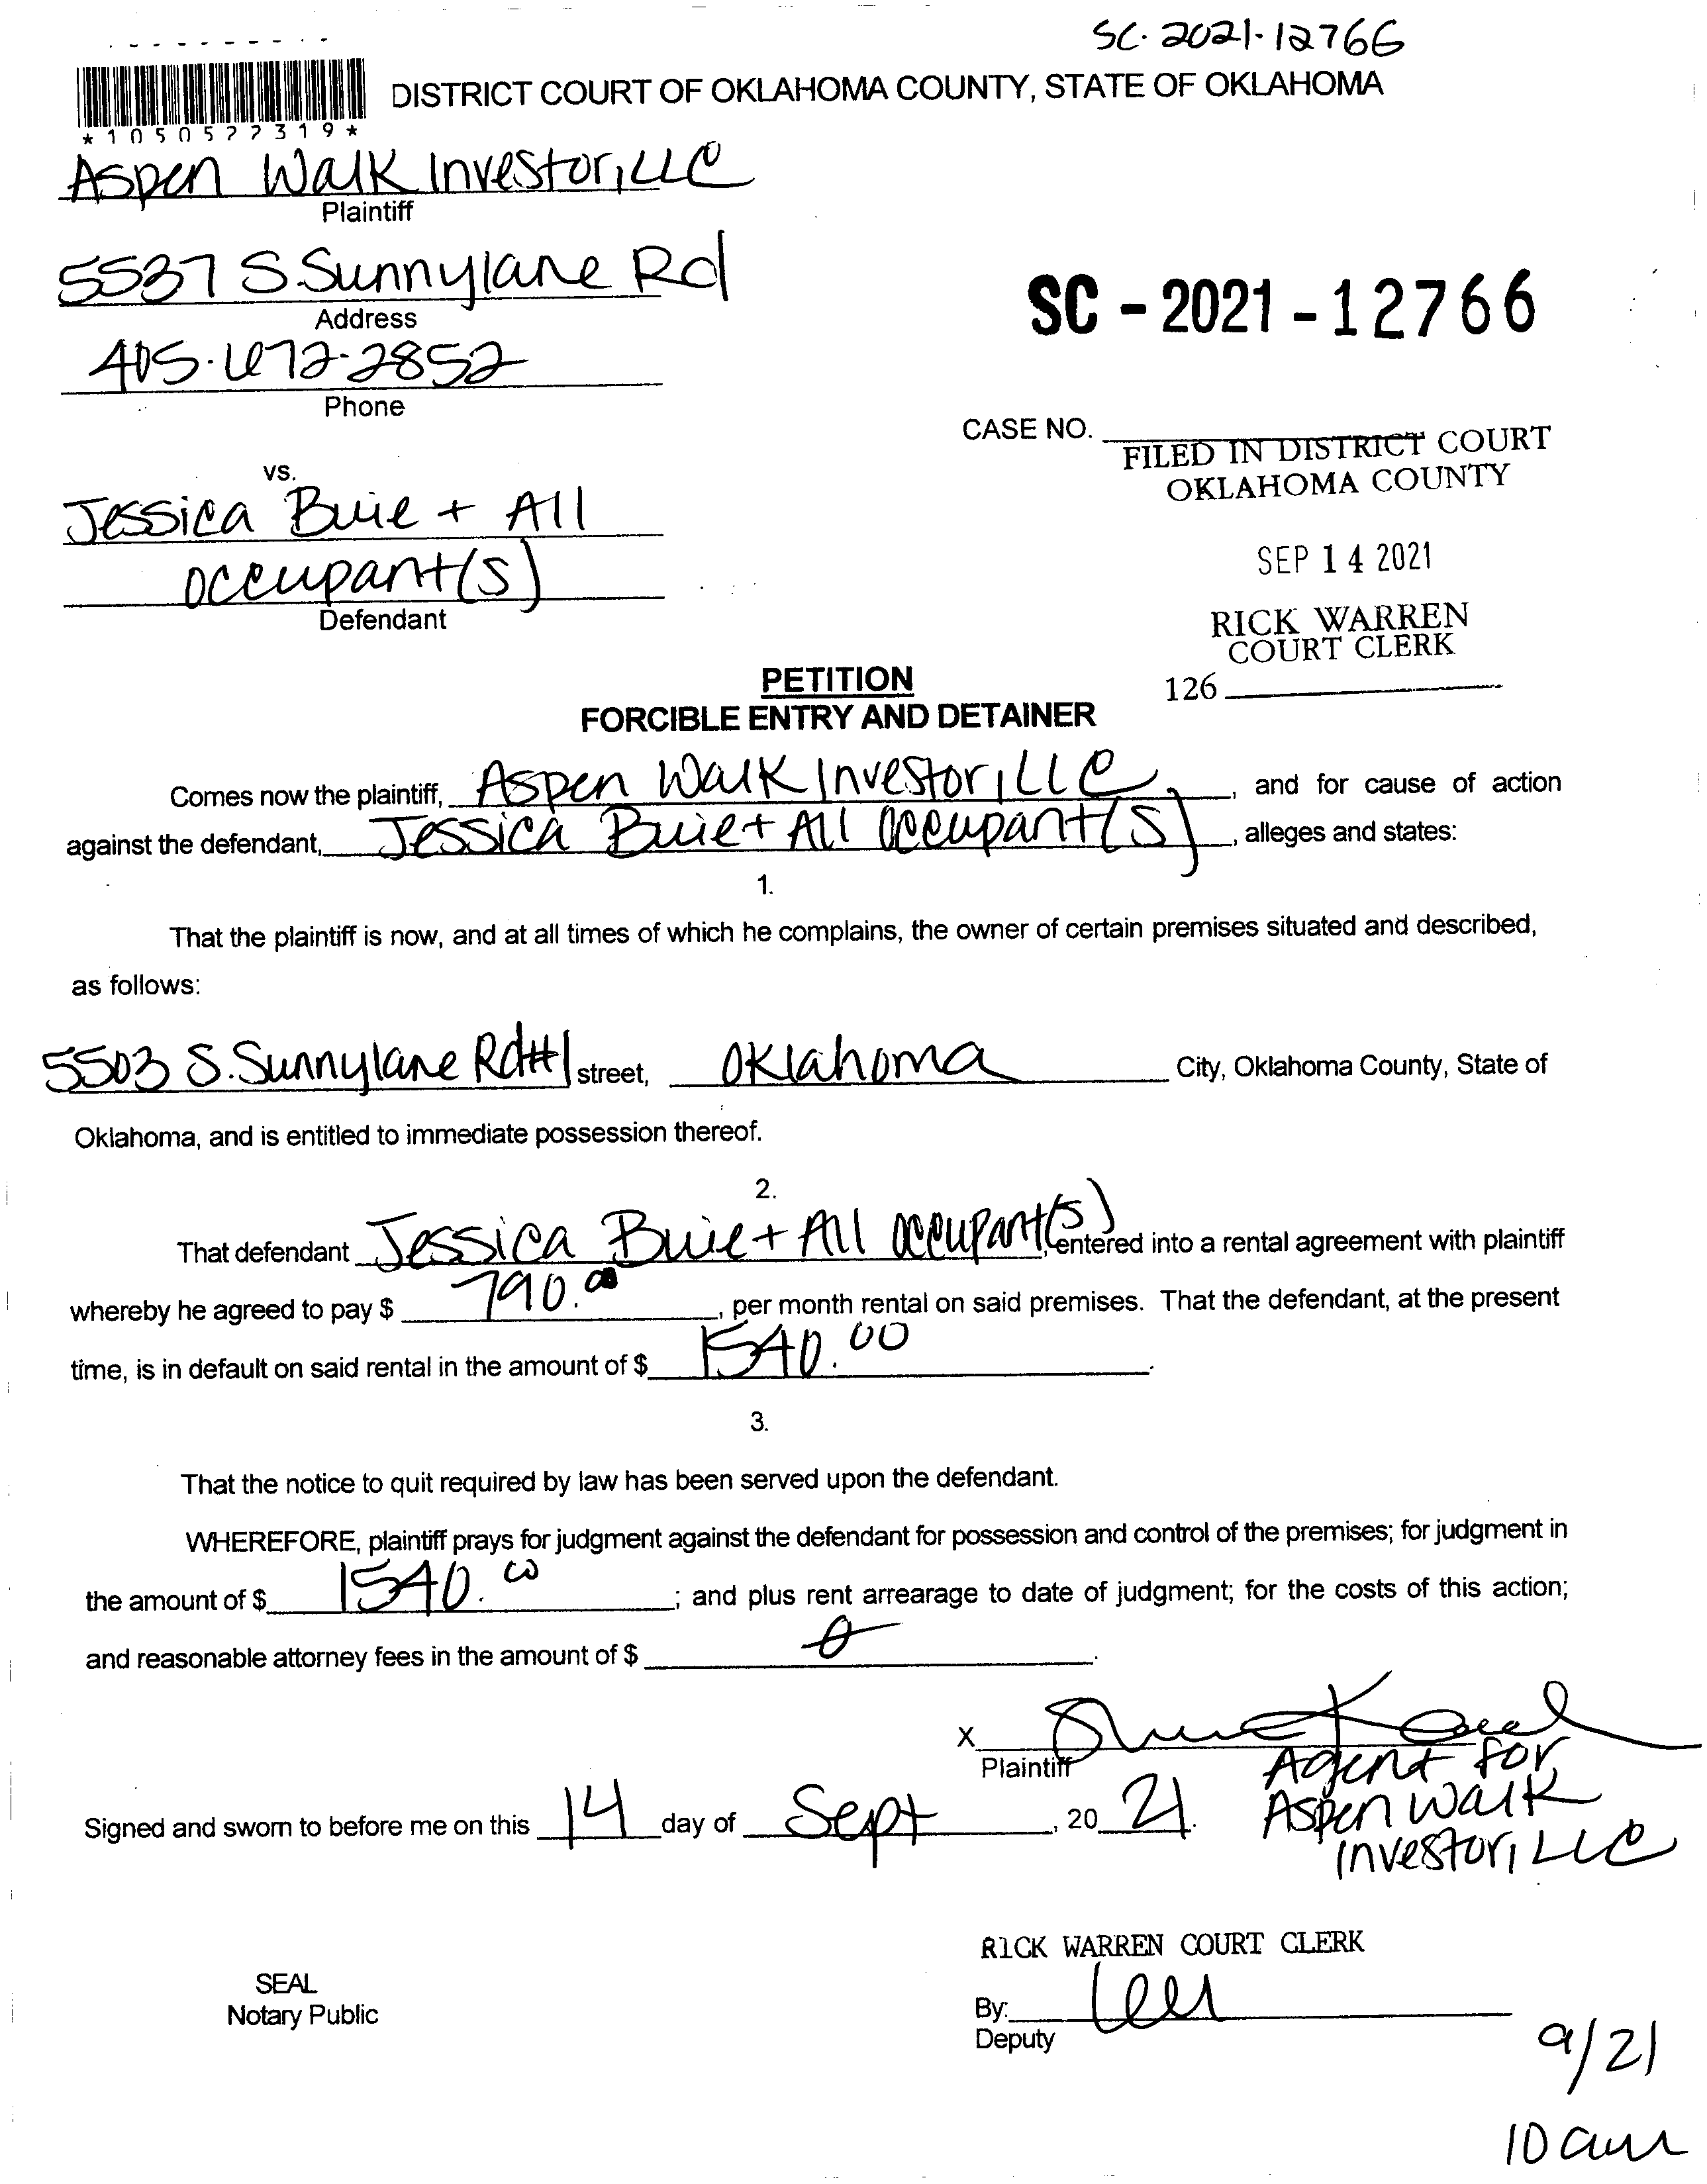 SC-2021-12766
DISTRICT COURT OF OKLAHOMA COUNTY, STATE OF OKLAHOMA
*1050522319*
Aspen Walk Investor, LLC
Plaintiff
5537 S. Sunnylane Rd
Address
405-672-2852
Phone
SC - 2021 - 12766
CASE NO.
FILED IN DISTRICT COURT
OKLAHOMA COUNTY
SEP 14 2021
RICK WARREN
COURT CLERK
126
vs.
Jessica Buie + All
occupant(s)
Defendant
PETITION
FORCIBLE ENTRY AND DETAINER
Comes now the plaintiff, Aspen Walk Investor, LLC, and for cause of action
against the defendant, Jessica Buie + All occupant(s), alleges and states:
1.
That the plaintiff is now, and at all times of which he complains, the owner of certain premises situated and described,
as follows:
5503 S. Sunnylane Rd #1 street, Oklahoma City, Oklahoma County, State of
Oklahoma, and is entitled to immediate possession thereof.
2.
That defendant Jessica Buie + All occupant(s), entered into a rental agreement with plaintiff
whereby he agreed to pay $ 790.00, per month rental on said premises. That the defendant, at the present
time, is in default on said rental in the amount of $ 1540.00.
3.
That the notice to quit required by law has been served upon the defendant.
WHEREFORE, plaintiff prays for judgment against the defendant for possession and control of the premises; for judgment in
the amount of $ 1540.00; and plus rent arrearage to date of judgment; for the costs of this action;
and reasonable attorney fees in the amount of $ 0.
X
Plaintiff
Agent for
Aspen Walk
Investor, LLC
Signed and sworn to before me on this 14 day of Sept, 2021.
RICK WARREN COURT CLERK
SEAL
Notary Public
By:
Deputy
9/21
10 am